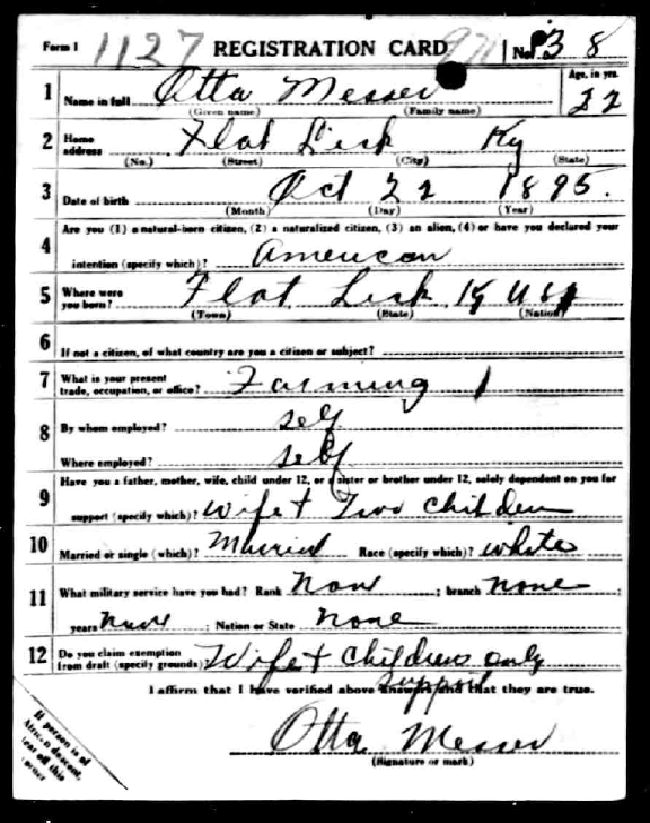 Form 1 1127 REGISTRATION CARD 971 No. 38
Age, in yrs.
1 Name in full Otta Messer 22
(Given name) (Family name)
2 Home address Flat Lick Ky
(No.) (Street) (City) (State)
3 Date of birth Oct 22 1895.
(Month) (Day) (Year)
Are you (1) a natural-born citizen, (2) a naturalized citizen, (3) an alien, (4) or have you declared your
4 intention (specify which)? American
5 Where were you born? Flat Lick Ky USA
(Town) (State) (Nation)
6 If not a citizen, of what country are you a citizen or subject?
7 What is your present trade, occupation, or office? Farming 1
8 By whom employed? self
Where employed? self
Have you a father, mother, wife, child under 12, or a sister or brother under 12, solely dependent on you for
9 support (specify which)? wife + Two children
10 Married or single (which)? Married Race (specify which)? white
11 What military service have you had? Rank None ; branch none ;
years None ; Nation or State None
12 Do you claim exemption from draft (specify grounds)? Wife + childrens only
support
I affirm that I have verified above answers and that they are true.
Otta Messer
(Signature or mark)
If person is of
African descent,
tear off this
corner